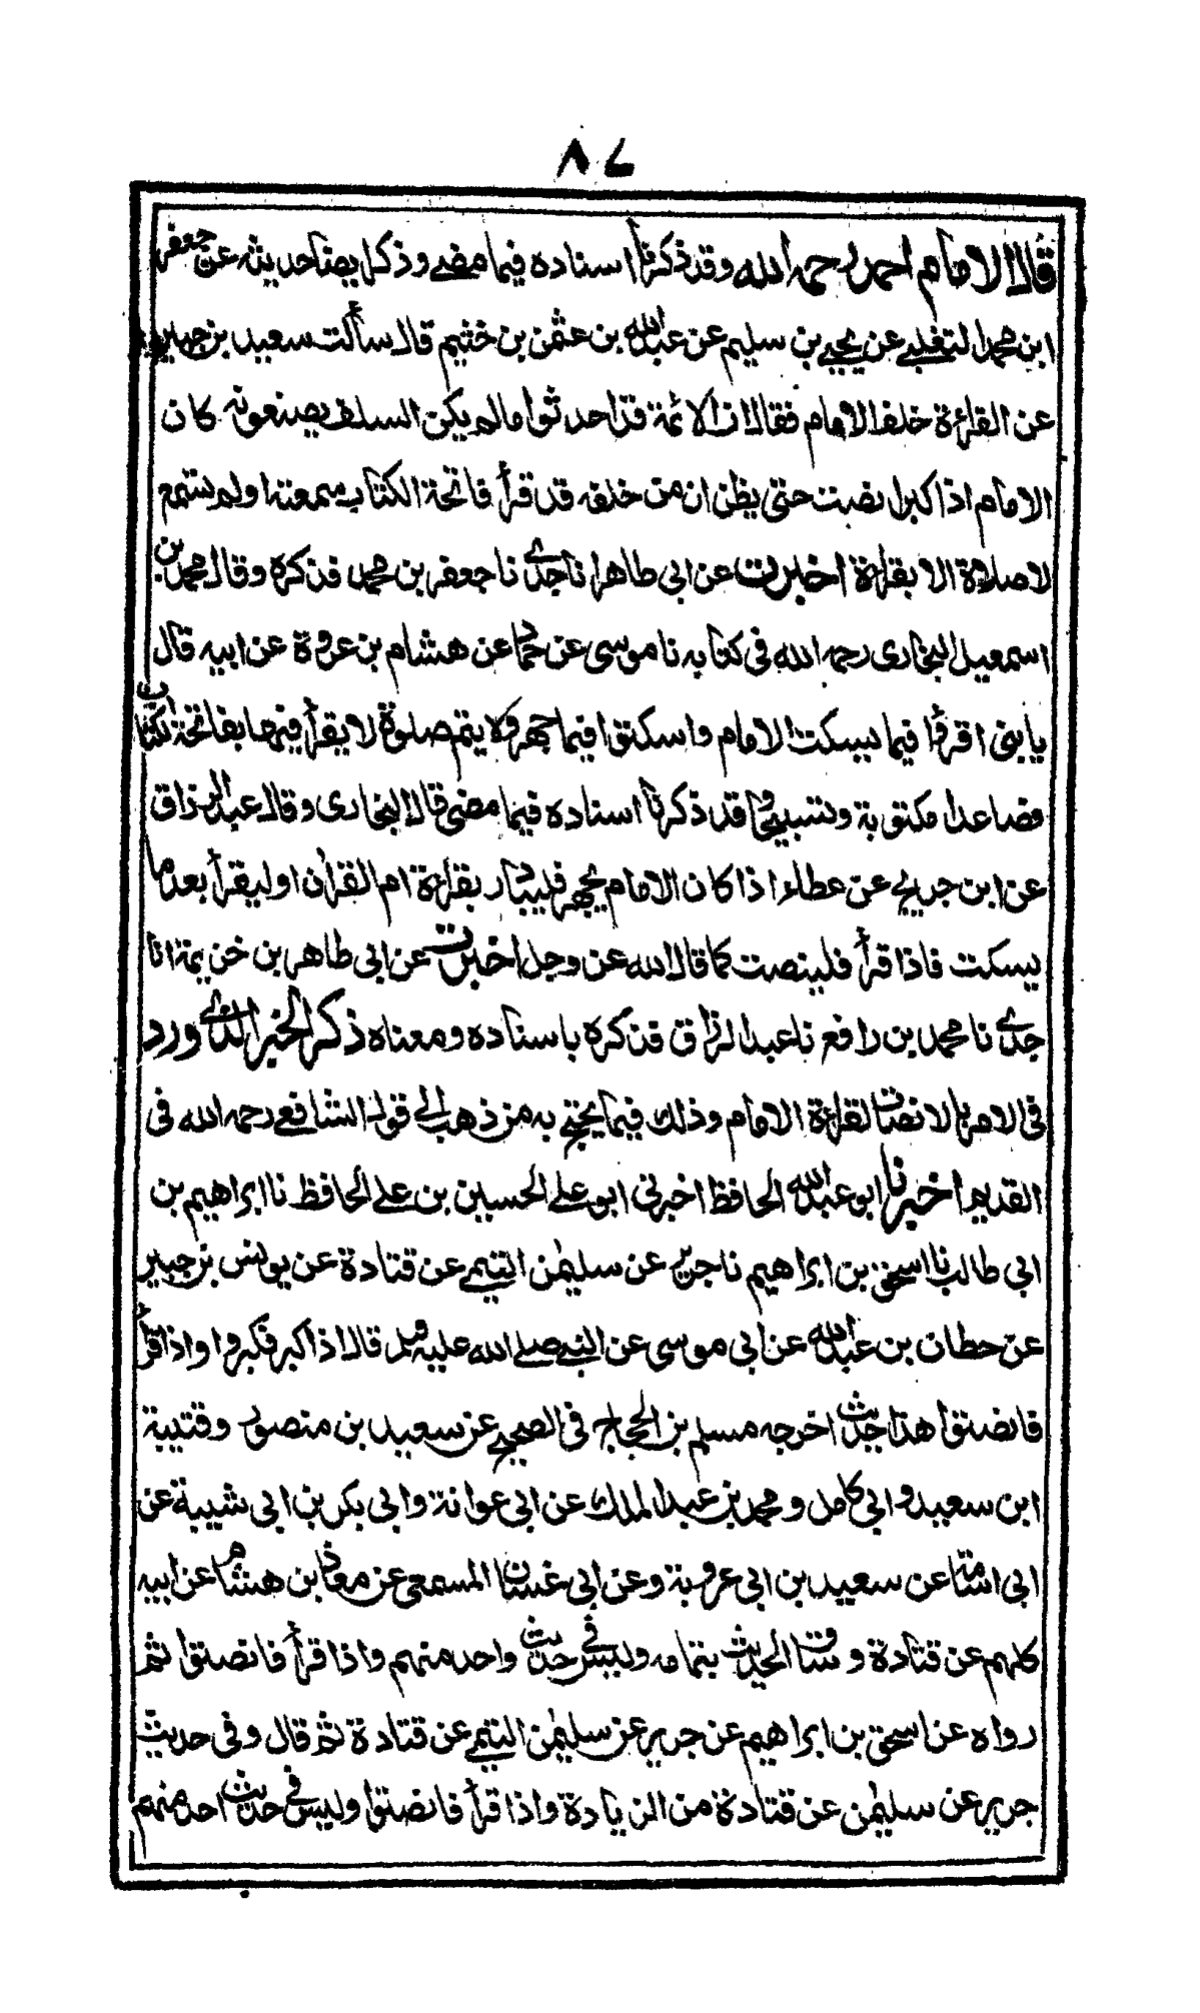 ٨٤
قال الامام احمد رحمه الله وقد ذكرنا اسناده فيما مضى وذكر ايضا حديثه عن جعفر
ابن محمد التغلبي عن يحيى بن سليم عن عبد الله بن عثمن بن خثيم قال سألت سعيد بن جبير
عن القراءة خلف الامام فقال ان الائمة قد احدثوا مالم يكن السلف يصنعونه كان
الامام اذا كبر انصت حتى يظن ان من خلفه قد قرأ فاتحة الكتاب سمعتها ولم تسمع
لا صلاة الا بقراءة اخبرت عن ابي طاهر انا جدي نا جعفر بن محمد فذكره وقال محمد بن
اسمعيل البخارى رحمه الله في كتابه نا موسى عن حماد عن هشام بن عروة عن ابيه قال
يا بنى اقرؤا فيما يسكت الامام واسكتوا فيما جهر ولا يتم صلوة لا يقرأ فيها بفاتحة الكتاب
فصاعدا مكتوبة وتسبيحا وقد ذكرنا اسناده فيما مضى قال البخارى وقال عبد الرزاق
عن ابن جريج عن عطاء اذا كان الامام يجهر فليبادر بقراءة ام القران او ليقرأ بعد ما
يسكت فاذا قرأ فلينصت كما قال الله عز وجل اخبرت عن ابي طاهر بن خزيمة انا
جدي نا محمد بن رافع نا عبد الرزاق فذكره باسناده ومعناه ذكر الخبر الذي ورد
في الامر بالانصات لقراءة الامام وذلك فيما يحتج به من ذهب الى قول الشافعي رحمه الله في
القديم اخبرنا ابو عبد الله الحافظ اخبرني ابو علي الحسين بن علي الحافظ نا ابراهيم بن
ابي طالب نا اسحق بن ابراهيم نا جرير عن سليمن التيمي عن قتادة عن يونس بن جبير
عن حطان بن عبد الله عن ابي موسى عن النبي صلى الله عليه وسلم قال اذا كبر فكبروا واذا قرأ
فانصتوا هذا حديث اخرجه مسلم بن الحجاج في الصحيح عن سعيد بن منصور وقتيبة
ابن سعيد وابي كامل ومحمد بن عبد الملك عن ابي عوانة وابي بكر بن ابي شيبة عن
ابي اسامة عن سعيد بن ابي عروبة وعن ابي غسان المسمعي عن معاذ بن هشام عن ابيه
كلهم عن قتادة وساق الحديث بتمامه وليس في حديث واحد منهم واذا قرأ فانصتوا ثم
رواه عن اسحق بن ابراهيم عن جرير عن سليمن التيمي عن قتادة ثم قال وفي حديث
جرير عن سليمن عن قتادة من الزيادة واذا قرأ فانصتوا وليس في حديث احد منهم